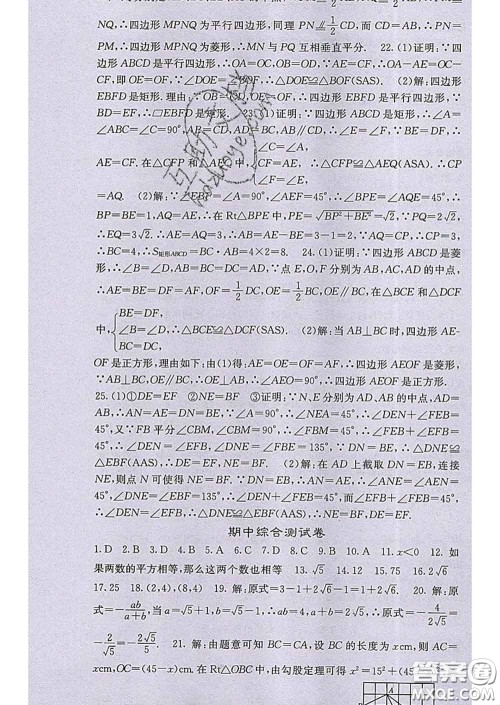 NQ,∴四边形MPNQ为平行四边形,同理PN≌½CD,而CD=AB,∴PN=
PM,∴四边形MPNQ为菱形,∴MN与PQ互相垂直平分. 22.(1)证明:∵四
边形ABCD是平行四边形,∴OA=OC,OB=OD,∵AE=CF,∴OA-AE=OC-
CF,即OE=OF,∴△DOE≌△BOF(SAS). (2)解:四边形
EBFD是矩形.理由:∵OB=OD,OE=OF,∴四边形EBFD是平行四边形,∵
BD=EF,∴▱EBFD是矩形. 23.(1)证明:∵四边形ABCD是矩形,∴∠A=
∠ABC=∠C=90°,AB=CD,∴AB=CD,∴∠E=∠F,∵BE=DF,∴
AE=CF.在△CFP和△AEQ中,{∠C=∠A, CF=AE, ∠F=∠E, ∴△CFP≌△AEQ(ASA).∴CP
=AQ. (2)解:∵∠EBP=∠A=90°,∠AEF=45°,∴∠BPE=∠AQE=45°,∴
BP=BE=1,AQ=AE,∴在Rt△BPE中,PE=√BP²+BE²=√2,∵PQ=2√2,
∴EQ=3√2.∴AQ=AE=3,∴AB=AE-BE=3-1=2,∵AQ=CP,∴CP=3,
∴BC=4,∴S矩形ABCD=BC·AB=4×2=8. 24.(1)证明:∵四边形ABCD是菱形,
∴∠B=∠D,AB=BC=DC=AD,∵点E,O,F分别为AB,AC,AD的中点,
∴AE=BE=DF=AF,OF=½DC,OE=½BC,OE∥BC,在△BCE和△DCF
中,{BE=DF, ∠B=∠D, BC=DC, ∴△BCE≌△DCF(SAS). (2)解:当AB⊥BC时,四边形AE-
OF是正方形,理由如下:由(1)得:AE=OE=OF=AF,∴四边形AEOF是菱形,
∵AB⊥BC,OE∥BC,∴OE⊥AB,∴∠AEO=90°,∴四边形AEOF是正方形.
25.(1)①DE=EF ②NE=BF ③证明:∵N,E分别为AD,AB的中点,AD=
AB,∴AN=AE=DN=EB,∵∠A=90°,∴∠NEA=45°,∴∠DEN+∠FEB=
45°,又∵BF平分∠CBM,∠CBM=90°,∴∠CBF=45°,∴∠EFB+∠FEB=45°,
∴∠DEN=∠EFB,∵∠DNE=∠FBE=135°,∵DN=EB,∴△DNE≌
△EBF(AAS),∴DE=EF,NE=BF. (2)解:在AD上截取DN=EB,连接
NE,则点N可使得NE=BF.∵DN=EB,AD=AB,∴AN=AE,∴∠ANE=45°,
∴∠DNE=∠EBF=135°,而∠DEN+∠FEB=45°,∠EFB+∠FEB=45°,
∴∠DEN=∠EFB,∴△DNE≌△EBF(AAS),∴DE=EF.
期中综合测试卷
1.D 2.B 3.D 4.B 5.A 6.C 7.D 8.C 9.B 10.A 11.x<0 12.如
果两数的平方相等,那么这两个数也相等 13.√5 14.12 15.75 16.2√6
17.25 18.(2,4),(8,4) 19.解:原式=3-1+2√6-√6=2+√6. 20.解:原
式=-ab/(a+b),当a=√5+1,b=√5-1,∴ab=4,a+b=2√5,∴原式=-4/2√5=
-2/√5=-2√5/5. 21.解:由题意可知BC=CA,设BC的长度为xcm,则AC=
xcm,OC=(45-x)cm.在Rt△OBC中,由勾股定理可得x²=15²+(45-
答案圈
MXQE.COM